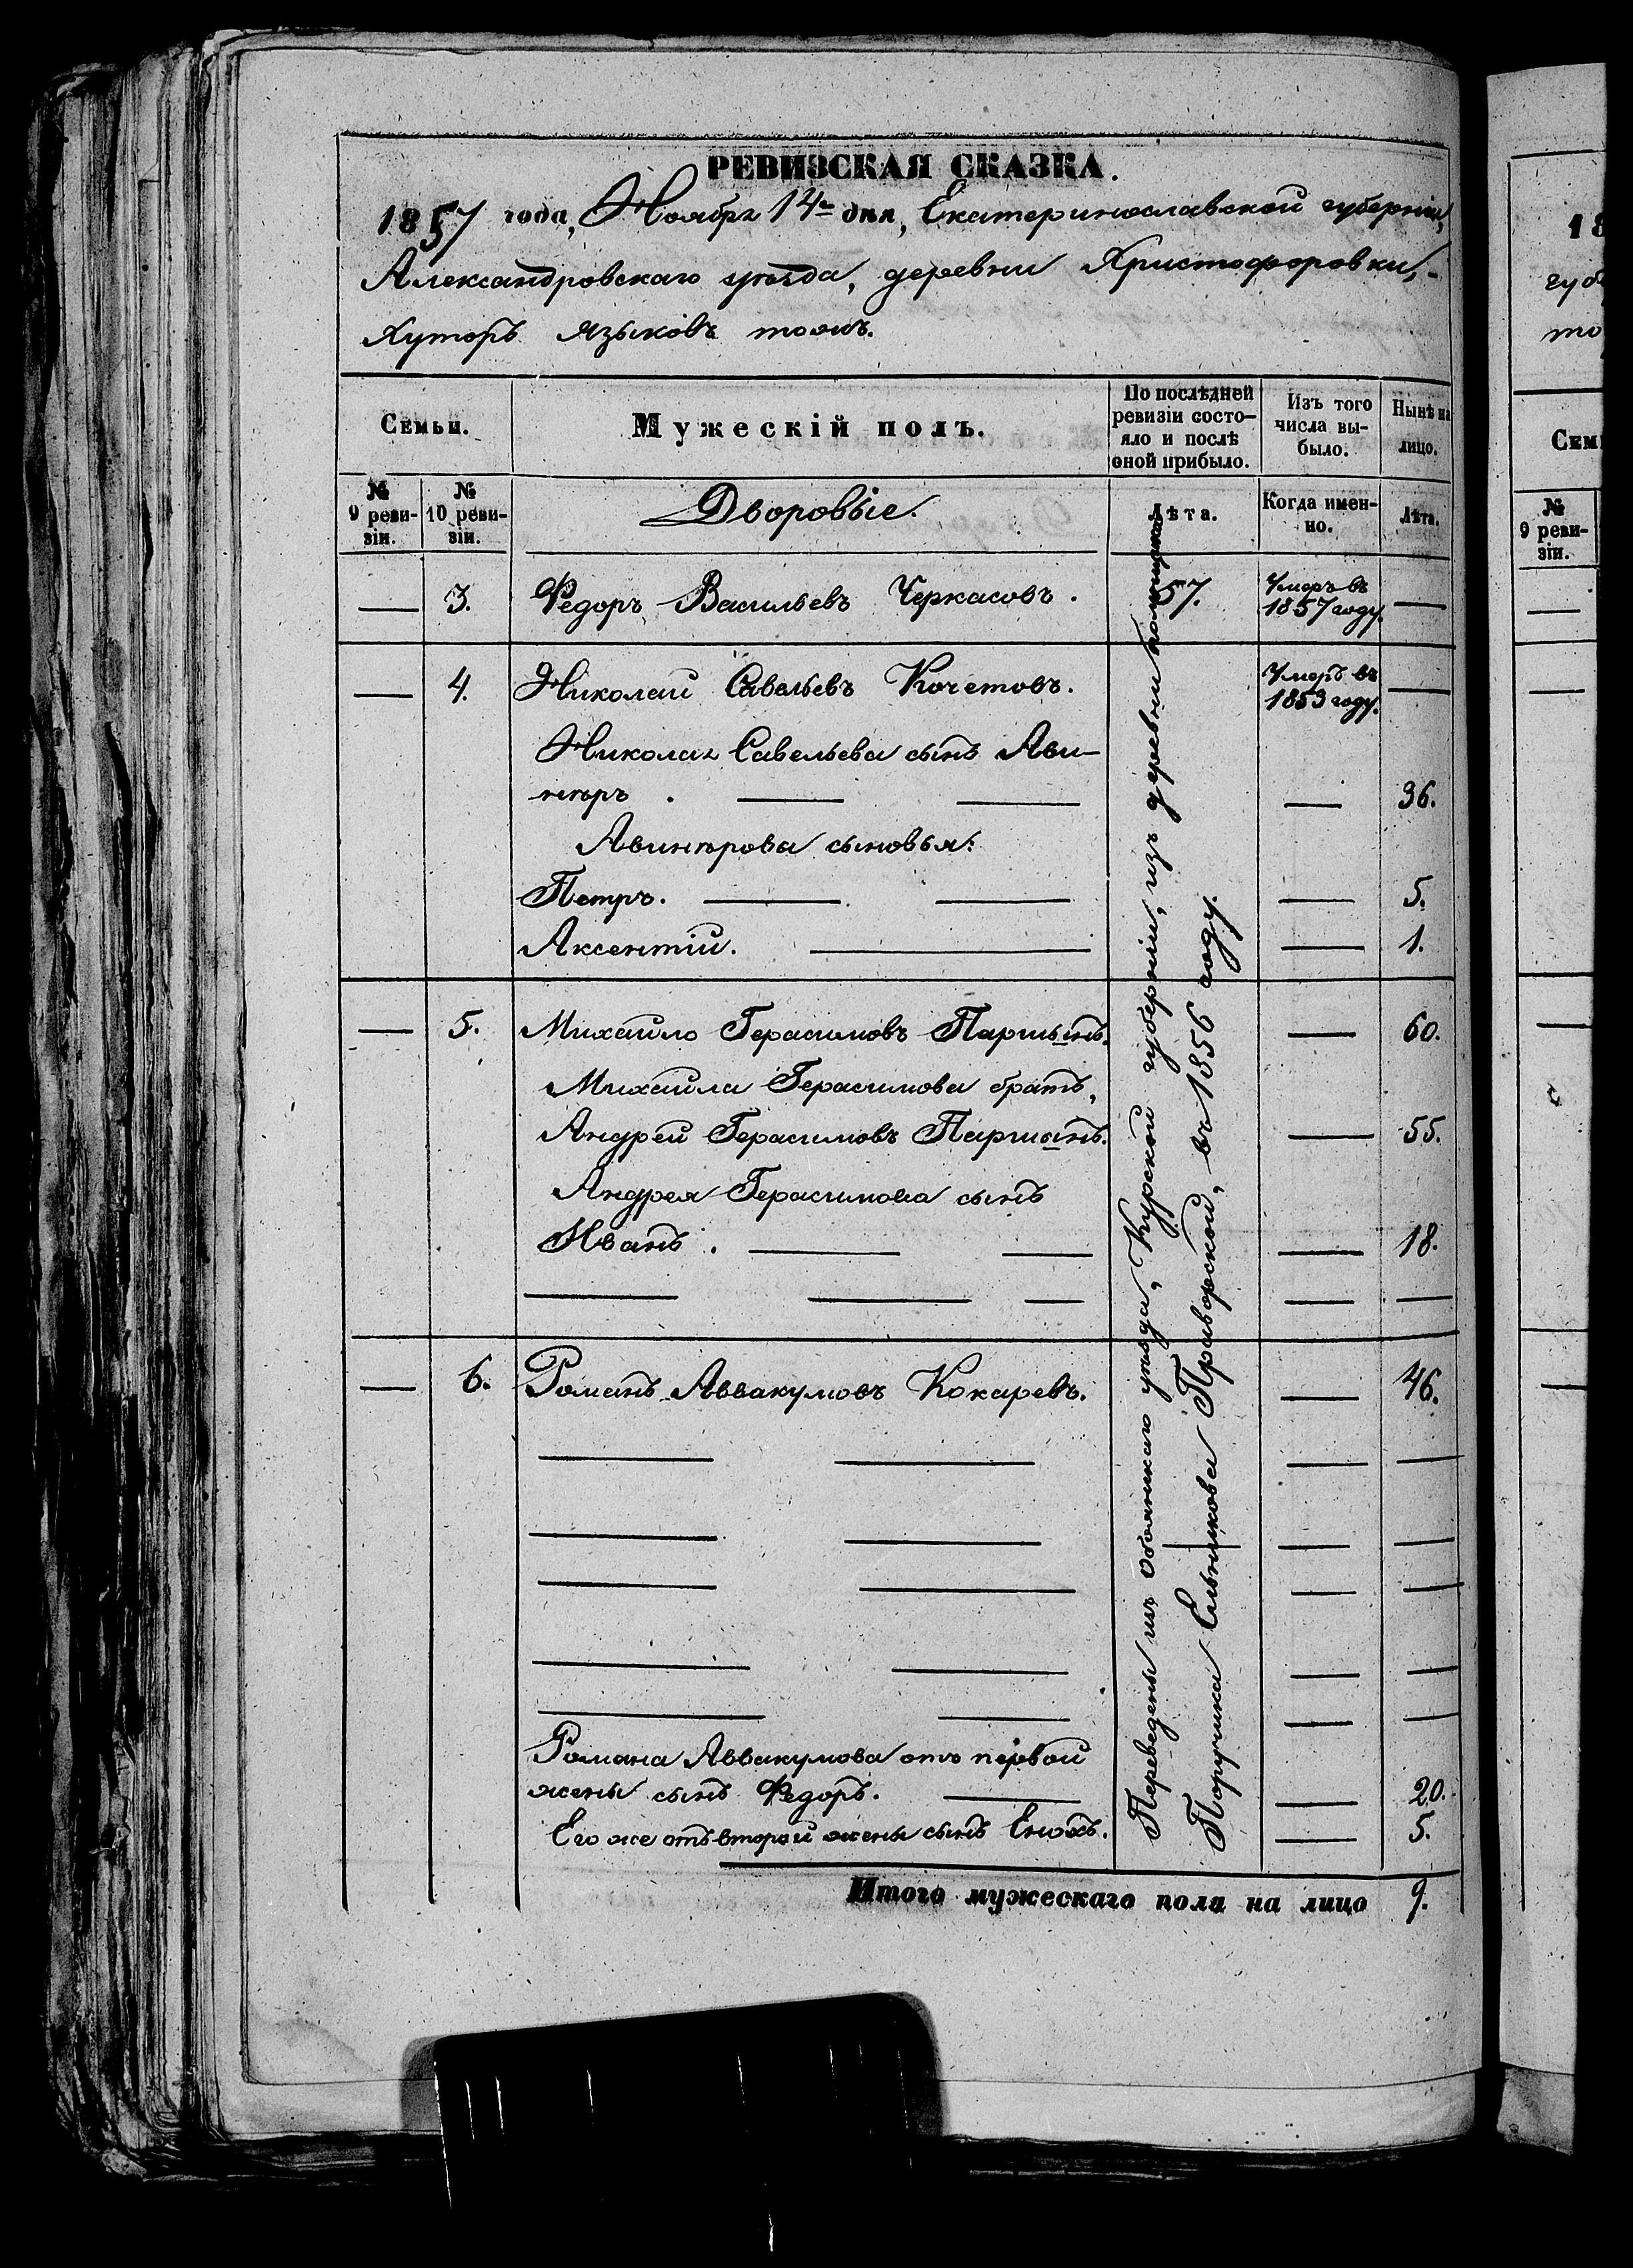 РЕВИЗСКАЯ СКАЗКА.
1857 года, Ноября 14го дня, Екатеринославской губерніи,
Александровскаго уѣзда, деревни Христофоровки,-
Хуторъ Языковъ тожъ.
Семьи.
Мужескій полъ.
По послѣдней
ревизіи состо-
яло и послѣ
оной прибыло.
Изъ того
числа вы-
было.
Нынѣ на
лицо.
№
9 реви-
зіи.
№
10 реви-
зіи.
Дворовые.
Лѣта.
Когда имен-
но.
Лѣта.
— 3. Федоръ Васильевъ Черкасовъ. 57. Умеръ въ
1857 году. —
— 4. Николай Савельевъ Кочетовъ. Умеръ въ
1853 году. —
Николая Савельева сынъ Ави-
ниръ. — — — 36.
Авинирова сыновья:
Петръ. — — — 5.
Аксентій. — — 1.
— 5. Михайло Герасимовъ Паршынъ. — 60.
Михайла Герасимова братъ,
Андрей Герасимовъ Паршынъ. — 55.
Андрея Герасимова сынъ
Иванъ. — — — 18.
— 6. Романъ Аввакумовъ Кокаревъ. — 46.
Романа Аввакумова отъ первой
жены сынъ Федоръ. — — 20.
Его же отъ второй жены сынъ Енохъ. — 5.
Переведены изъ Обоянскаго уѣзда, Курской губерніи, изъ деревни помѣщика
Поручика Ельникова Праворской, въ 1856 году.
Итого мужескаго пола на лицо 9.
18
губ
то
Сем
№
9 реви-
зіи.